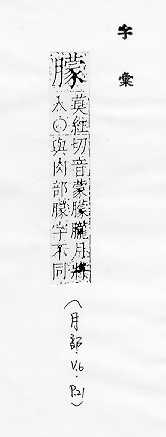 字彙
朦
莫紅切音蒙朦朧月將
入○與肉部朦字不同
(月部.V.6.P.21)